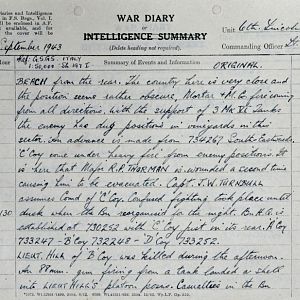 Diaries and Intelligence
in F.S. Regs., Vol. I
cover for the
will be found
WAR DIARY
or
INTELLIGENCE SUMMARY
(Delete heading not required).
Unit 6th. Lincoln
Commanding Officer
September 1943
Ref: G.S.G.S.
1: 50,000
Summary of Events and Information
ORIGINAL.
BEACH from the rear. The country here is very close and
the position seems rather obscure, Mortar & M.G. firing coming
from all directions. With the support of 3 Mk VI Tanks
the enemy has dug positions in vineyards in this
sector. An advance is made from 734267 South-Eastwards.
'C' Coy come under heavy fire from enemy positions. It
is here that Major R.P. THORMAN is wounded a second time
causing him to be evacuated. Capt. J.W. TURNBULL
assumes Comd of 'C' Coy. Confused fighting took place until
130
dusk when the Bn reorganised for the night. Bn. H.Q. is
established at 730252 with 'C' Coy just in its rear. A Coy
733247 - 'B' Coy 732248 - 'D' Coy 733252.
LIEUT. HILL of 'B' Coy was killed during the afternoon.
An 88mm. gun firing from a tank landed a shell
into LIEUT HILL'S platoon posns. Casualties in the Bn